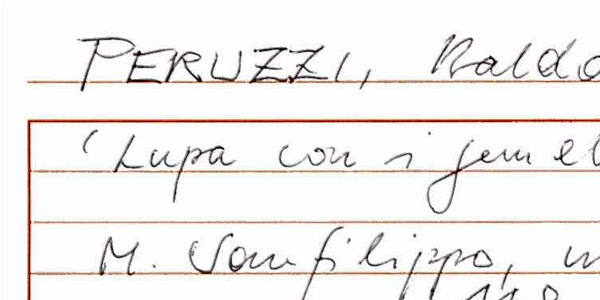 PERUZZI, Baldo
"Lupa con i gemel
M. Sanfilippo,